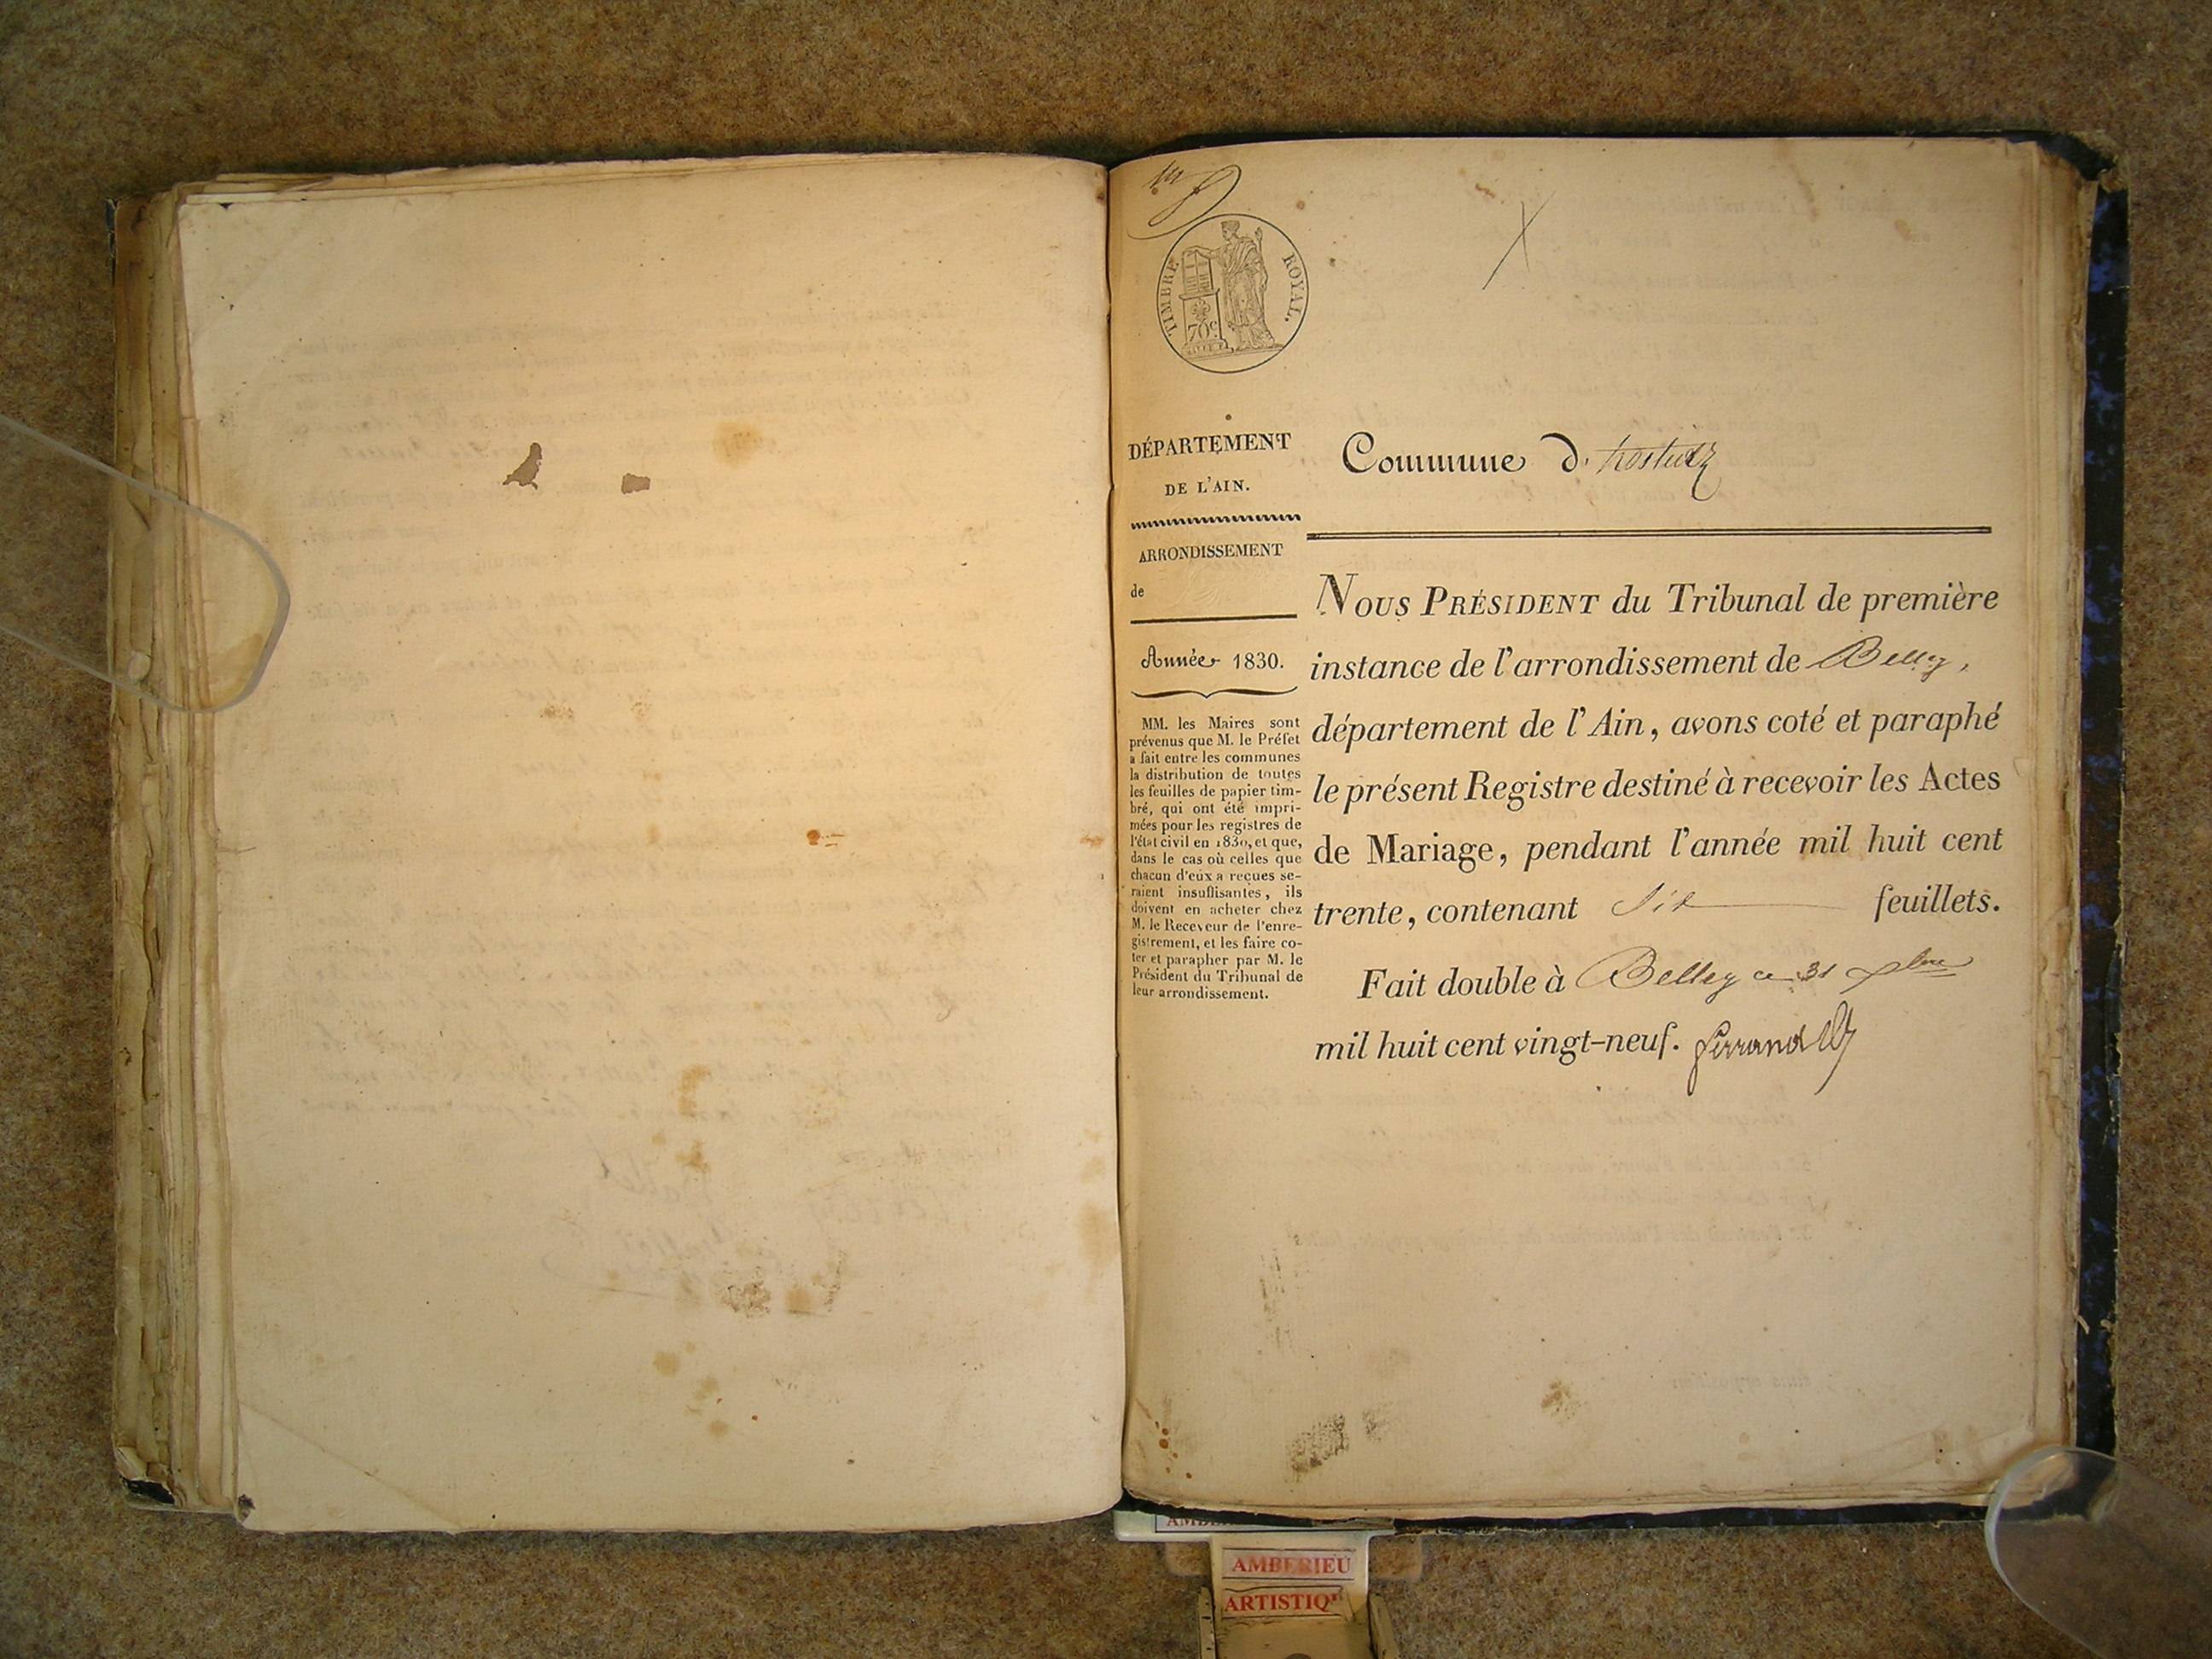 TIMBRE ROYAL.
70c.
DÉPARTEMENT
DE L'AIN.
ARRONDISSEMENT
de
Année 1830.
MM. les Maires sont
prévenus que M. le Préfet
a fait entre les communes
la distribution de toutes
les feuilles de papier tim-
bré, qui ont été impri-
mées pour les registres de
l'état civil en 1830, et que,
dans le cas où celles que
chacun d'eux a reçues se-
raient insuffisantes, ils
doivent en acheter chez
M. le Receveur de l'enre-
gistrement, et les faire co-
ter et parapher par M. le
Président du Tribunal de
leur arrondissement.
Commune d.
NOUS PRÉSIDENT du Tribunal de première
instance de l'arrondissement de Belley,
département de l'Ain, avons coté et paraphé
le présent Registre destiné à recevoir les Actes
de Mariage, pendant l'année mil huit cent
trente, contenant six feuillets.
Fait double à Belley ce 31 xbre
mil huit cent vingt-neuf. Ferrand
AMBERIEU
ARTISTIQ